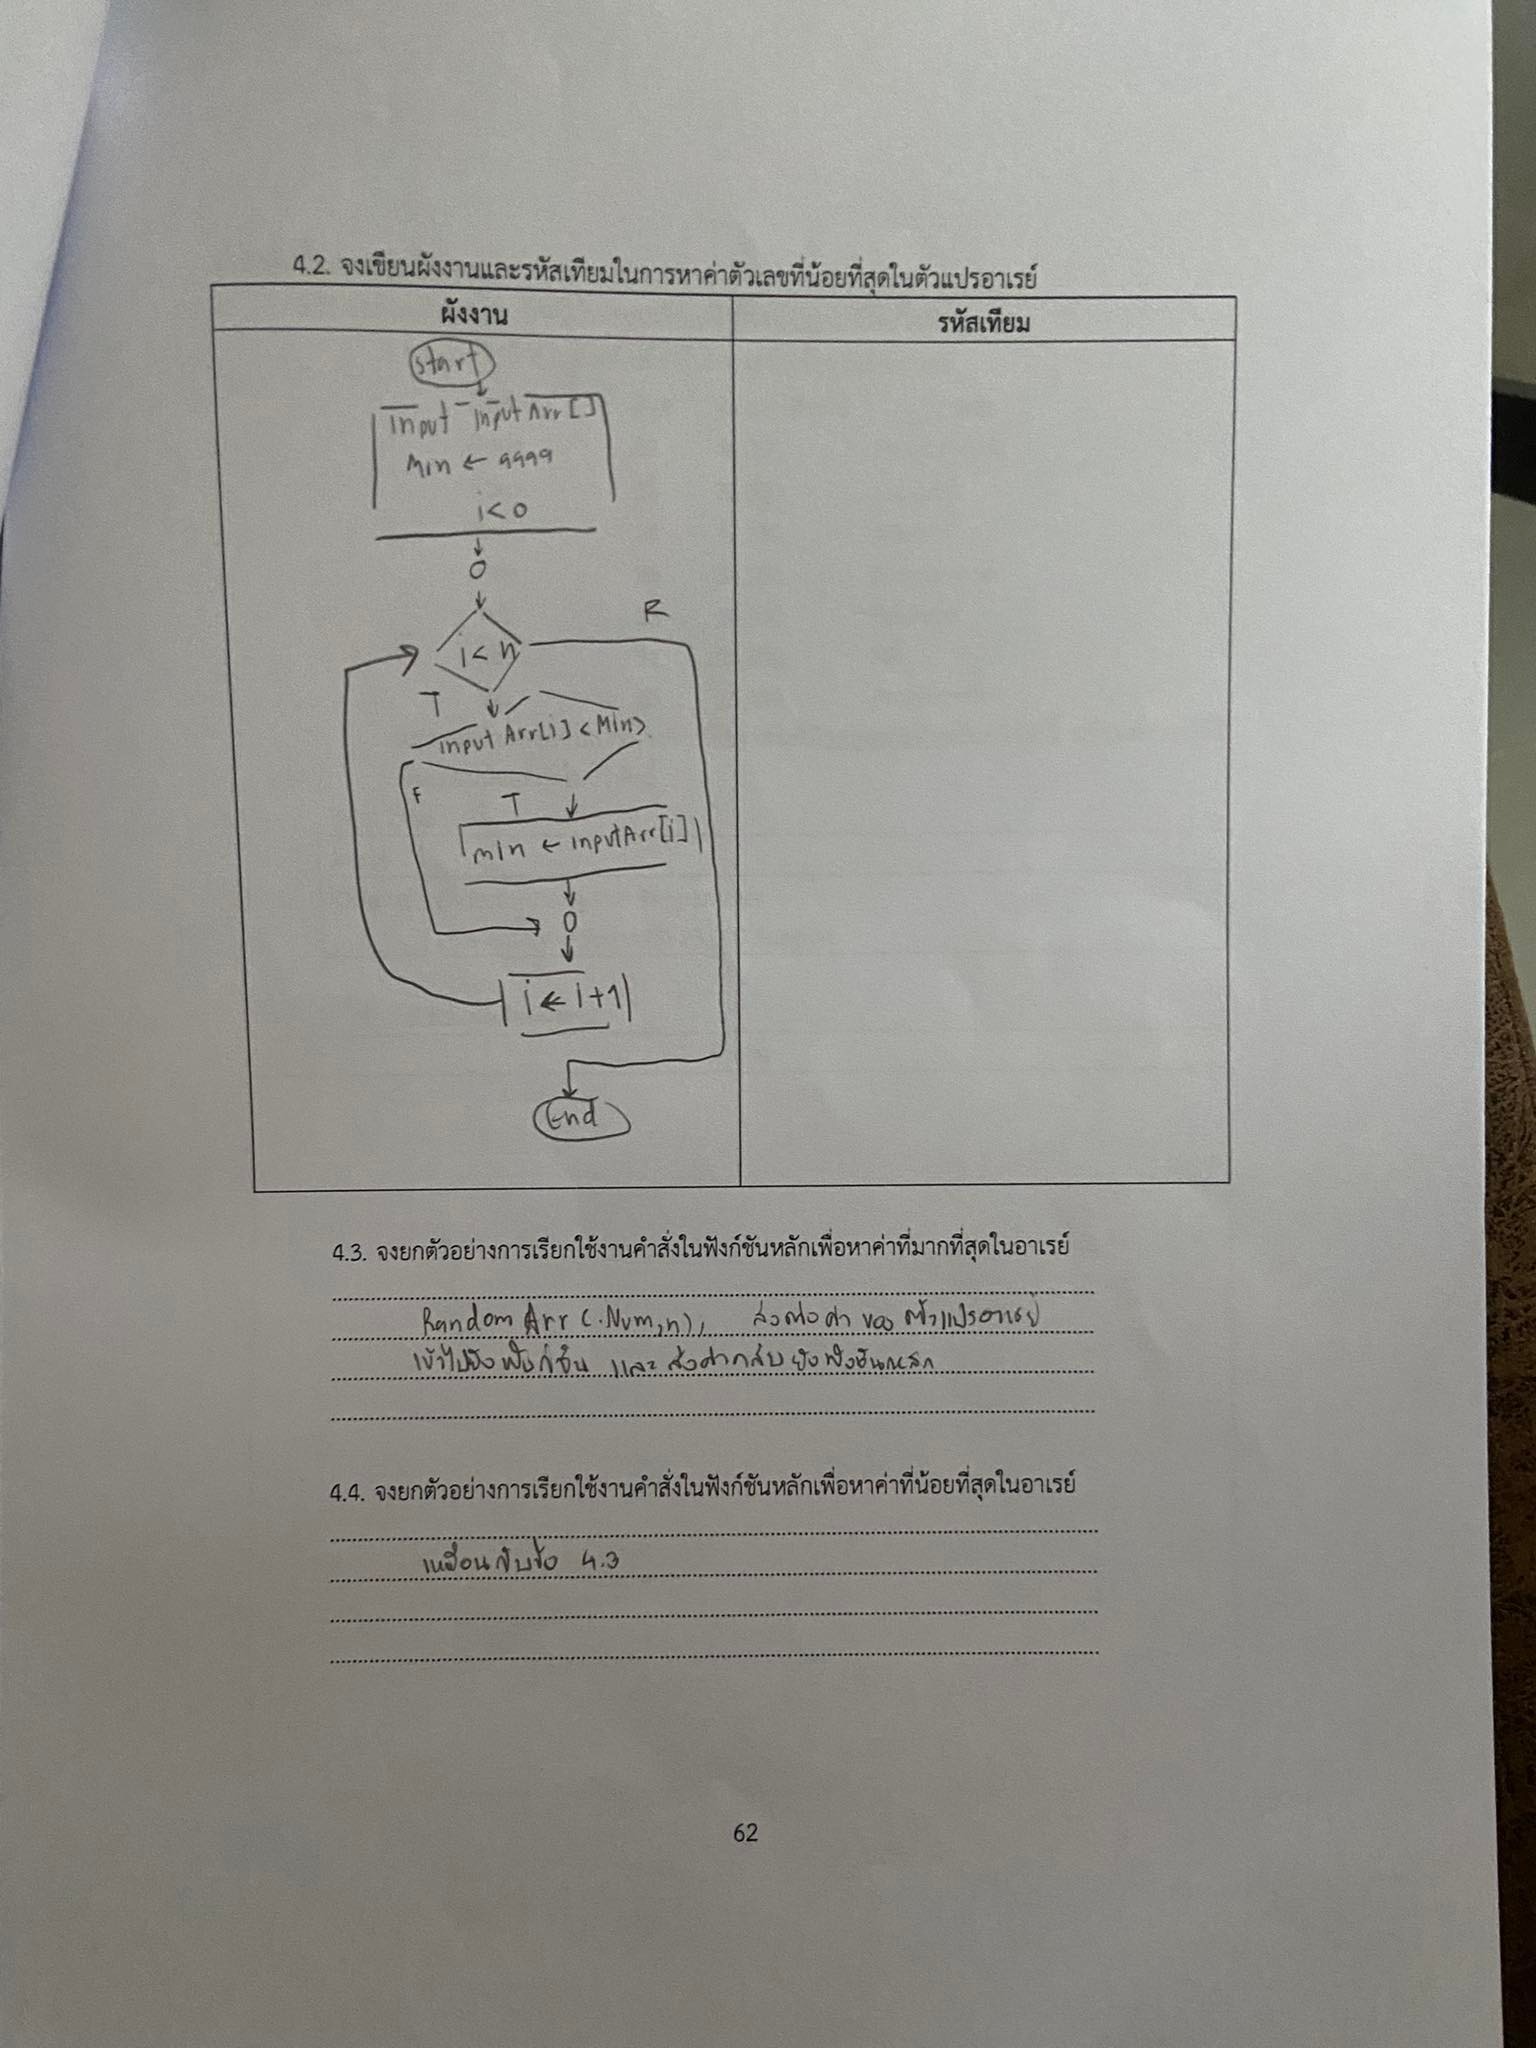 4.2. จงเขียนผังงานและรหัสเทียมในการหาค่าตัวเลขที่น้อยที่สุดในตัวแปรอาเรย์
ผังงาน
รหัสเทียม
Start
Input InputArr[]
Min ← 9999
i<0
i<n
F
T
InputArr[i] < Min
F
T
Min ← InputArr[i]
i ← i+1
End
4.3. จงยกตัวอย่างการเรียกใช้งานคำสั่งในฟังก์ชันหลักเพื่อหาค่าที่มากที่สุดในอาเรย์
RandomArr(Num,n); ส่งต่อค่าของตัวแปรอาเรย์
เข้าไปยังฟังก์ชัน และส่งค่ากลับยังฟังชันหลัก
4.4. จงยกตัวอย่างการเรียกใช้งานคำสั่งในฟังก์ชันหลักเพื่อหาค่าที่น้อยที่สุดในอาเรย์
เหมือนกับข้อ 4.3
62